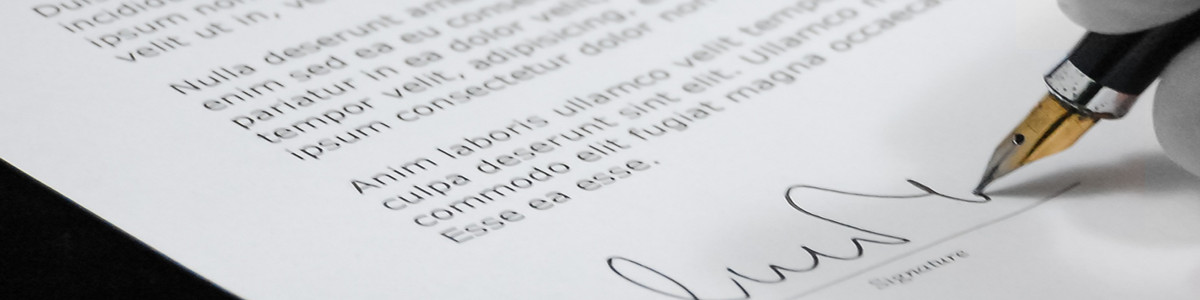 Duis
incididu
ipsum non
velit ut in, ve
Nulla deserunt
enim sed ea eu
pariatur in ea dolor velit
tempor velit, adipisicing,
ipsum consectetur dolor non
Anim laboris ullamco velit
culpa deserunt sint elit. Ullamco
commodo elit fugiat magna occaecat
Esse ea esse.
Signature